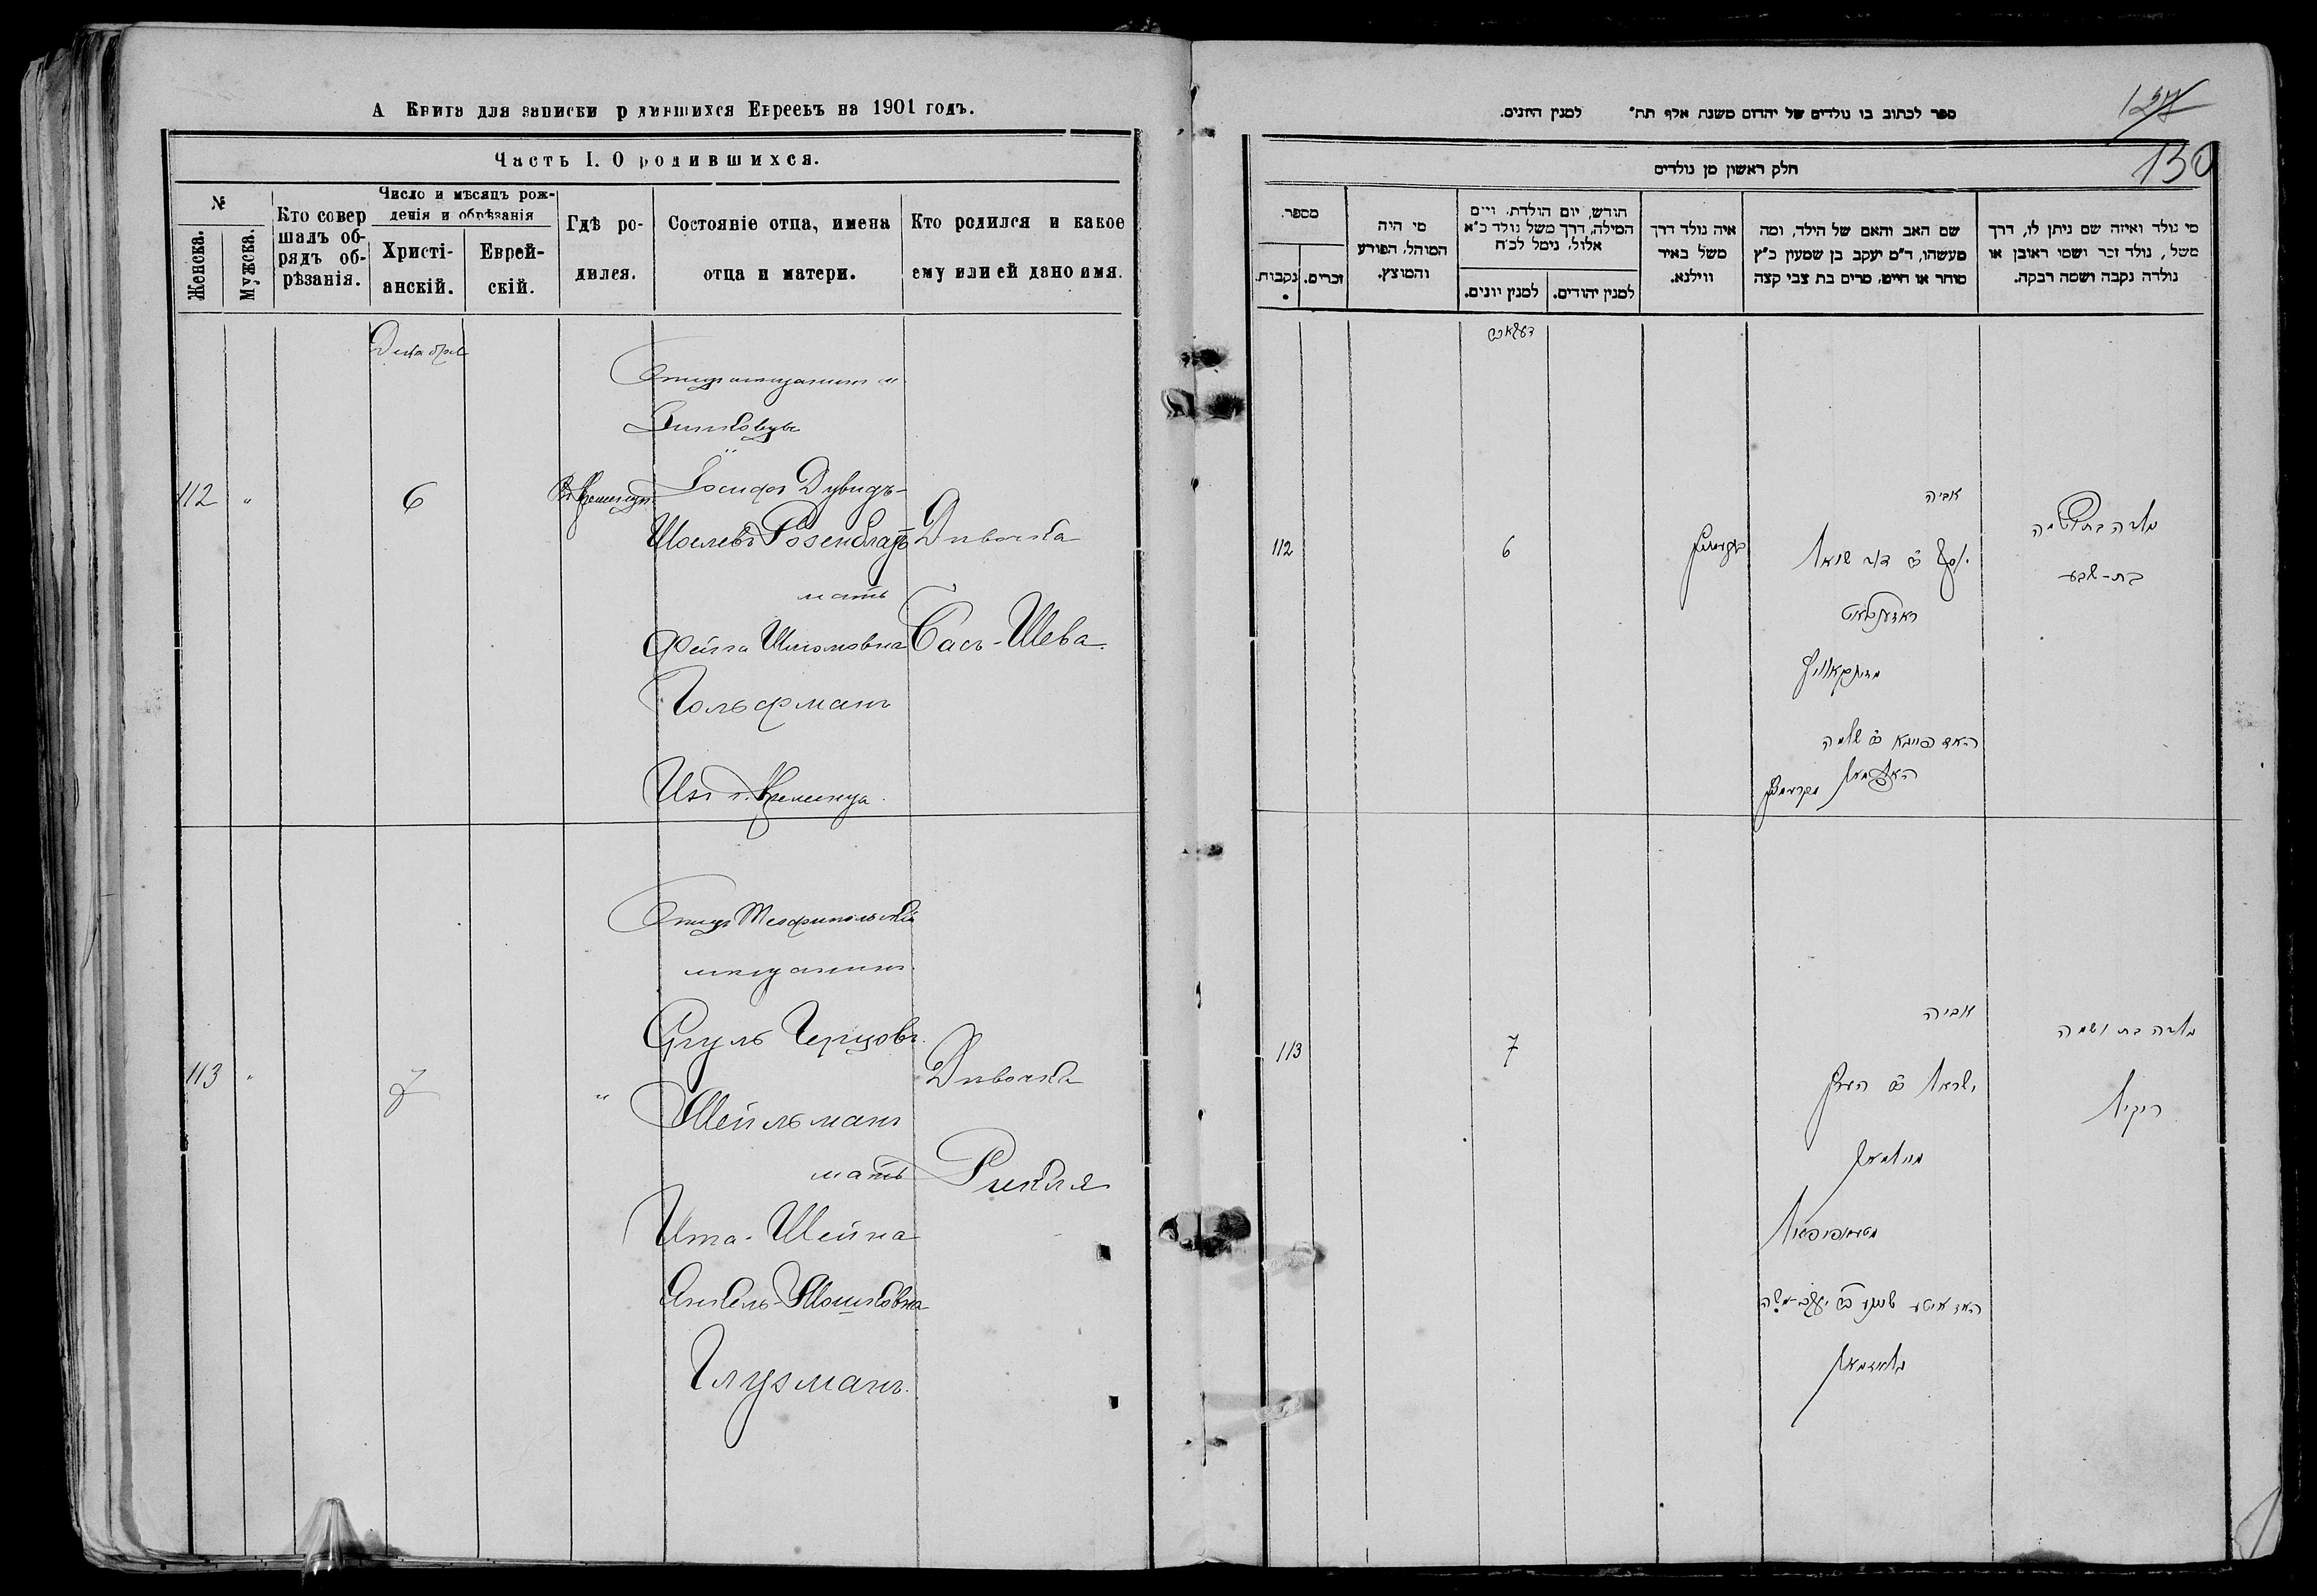 А Книга для записки р дившихся Евреевъ на 1901 годъ.
Часть I. О родившихся.
№
Женска.
Мужска.
Кто совер
шалъ об-
рядъ об-
рѣзанія.
Число и мѣсяцъ рож-
денія и обрѣзанія
Христі-
анскій.
Еврей-
скій.
Гдѣ ро-
дился.
Состояніе отца, имена
отца и матери.
Кто родился и какое
ему или ей дано имя.
Декабрь
Отецъ мещанинъ м.
112
"
6
Въ Кременцѣ
Іосифъ Дувидъ-
Шоелевъ Розенблатъ
мать
Фейга Шломовна
Гольфманъ
Изъ г. Кременца.
Дивочка
Бась-Шева.
Отецъ Теофипольскій
мещанинъ
113
"
7
"
Сруль Герцовъ
Мейльманъ
мать
Ита-Шейна
Янкель-Мошковна
Глузманъ.
Дивочка
Рикля
ספר לכתוב בו נולדים של יהדום משנת אלף תת" למנין היונים.
127
130
חלק ראשון מן נולדים
מספר.
נקבות.
זכרים.
מי היה
המוהל, הפורע
והמוצץ.
חודש, יום הולדת, ויום
המילה, דרך משל נולד כ"א
אלול, נימל לכ"ח
למנין יונים.
למנין יהודים.
איה נולד דרך
משל באיר
ווילנא.
שם האב והאם של הילד, ומה
מעשהו, ד"מ יעקב בן שמעון כ"ץ
סוחר או חייט, מרים בת צבי קצה
מי נולד ואיזה שם ניתן לו, דרך
משל, נולד זכר ושמו ראובן או
נולדה נקבה ושמה רבקה.
דעקאבר
112
6
בקרעמניץ
אביה
יוסף דוד שואל
ראזענבלאט
האם פייגא בת שלמה
האלפמאן מקרעמניץ
נולדה בת ושמה
בת-שבע
113
7
אביה
ישראל ב"ר הערץ
מיילמאן
האם איטע שיינע בת יעקב משה
גלוזמאן
נולדה בת ושמה
ריקיל